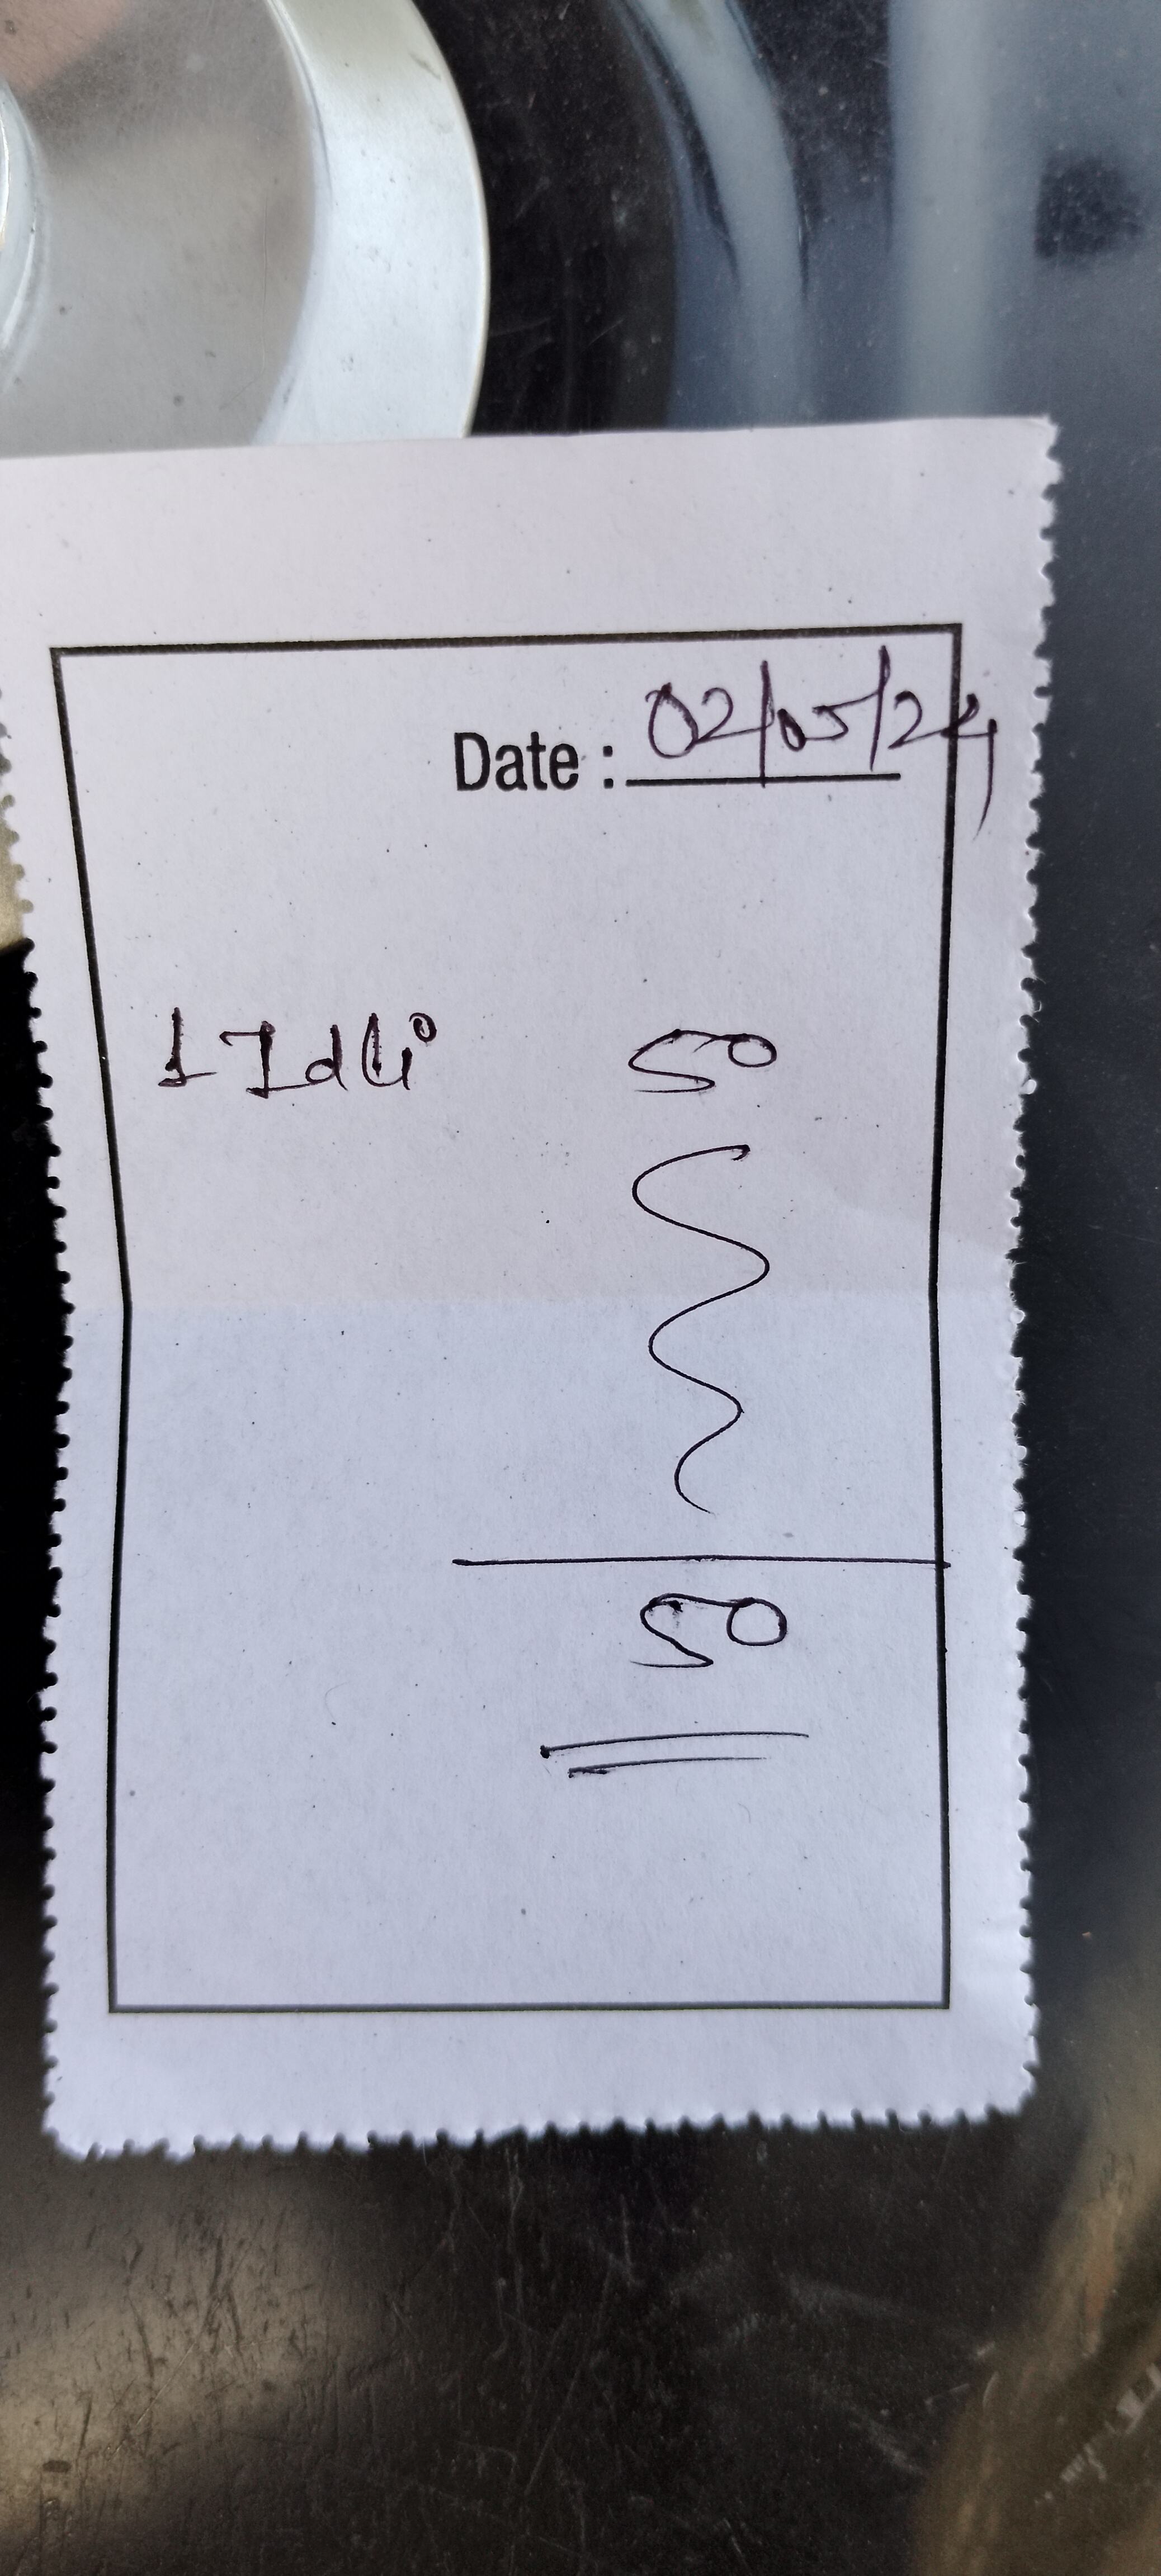 Date : 02/05/24
1 Idli 50
50